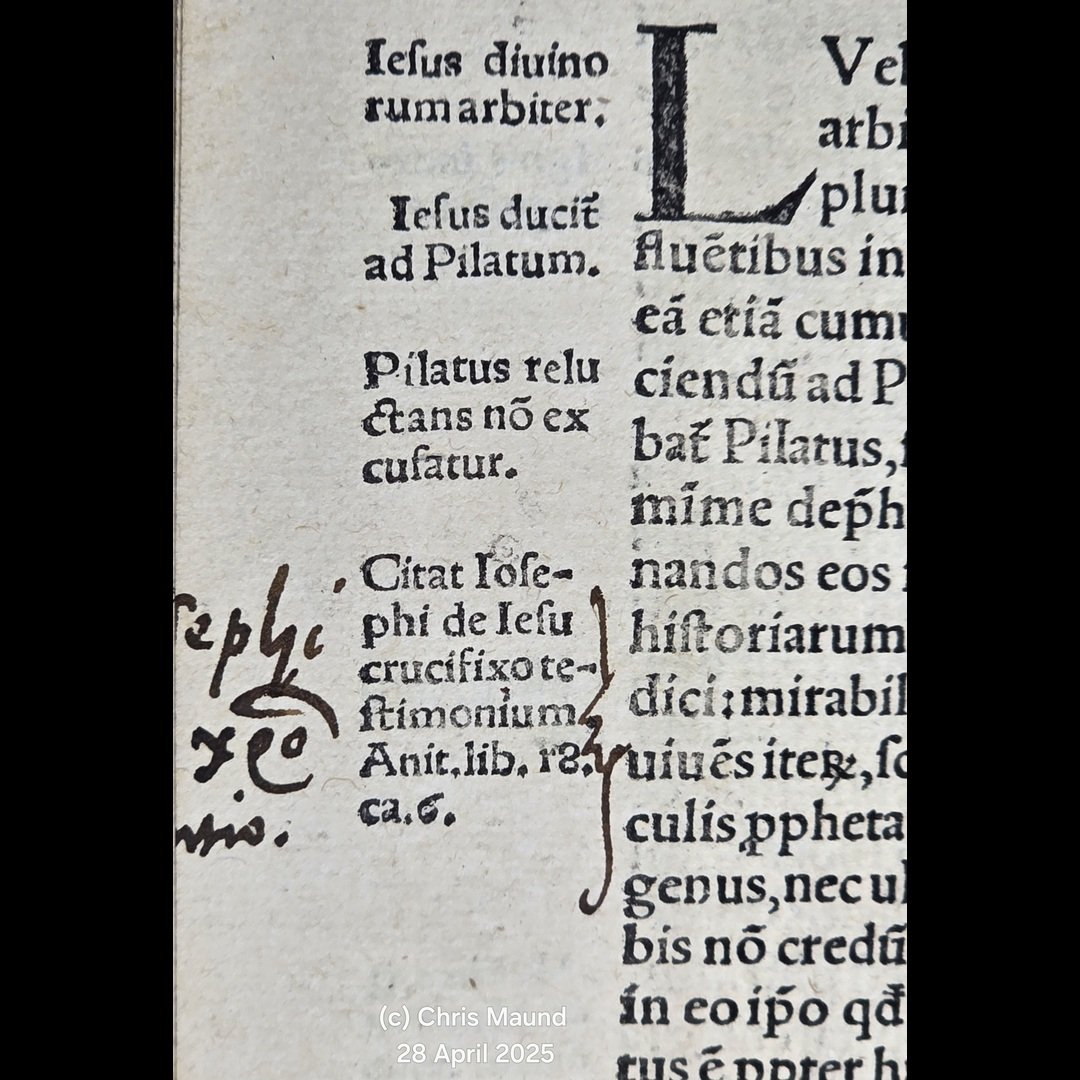 Iesus diuino
rum arbiter.
Iesus ducit̃
ad Pilatum.
Pilatus relu
ctans nō ex
cusatur.
Citat Iose-
phi de Iesu
crucifixo te-
stimonium
Anit. lib. 18.
ca. 6.
sephi
L
Vel
arbi
plur
fluētibus in
eā etiā cumu
ciendū ad P
bat̃ Pilatus,
mīme dep̄h
nandos eos
historiarum
dici: mirabil
uiuēs iteꝝ, so
culis ꝓpheta
genus, nec ul
bis nō credū
in eo ip̄o qđ
tus ē ꝓpter h
(c) Chris Maund
28 April 2025